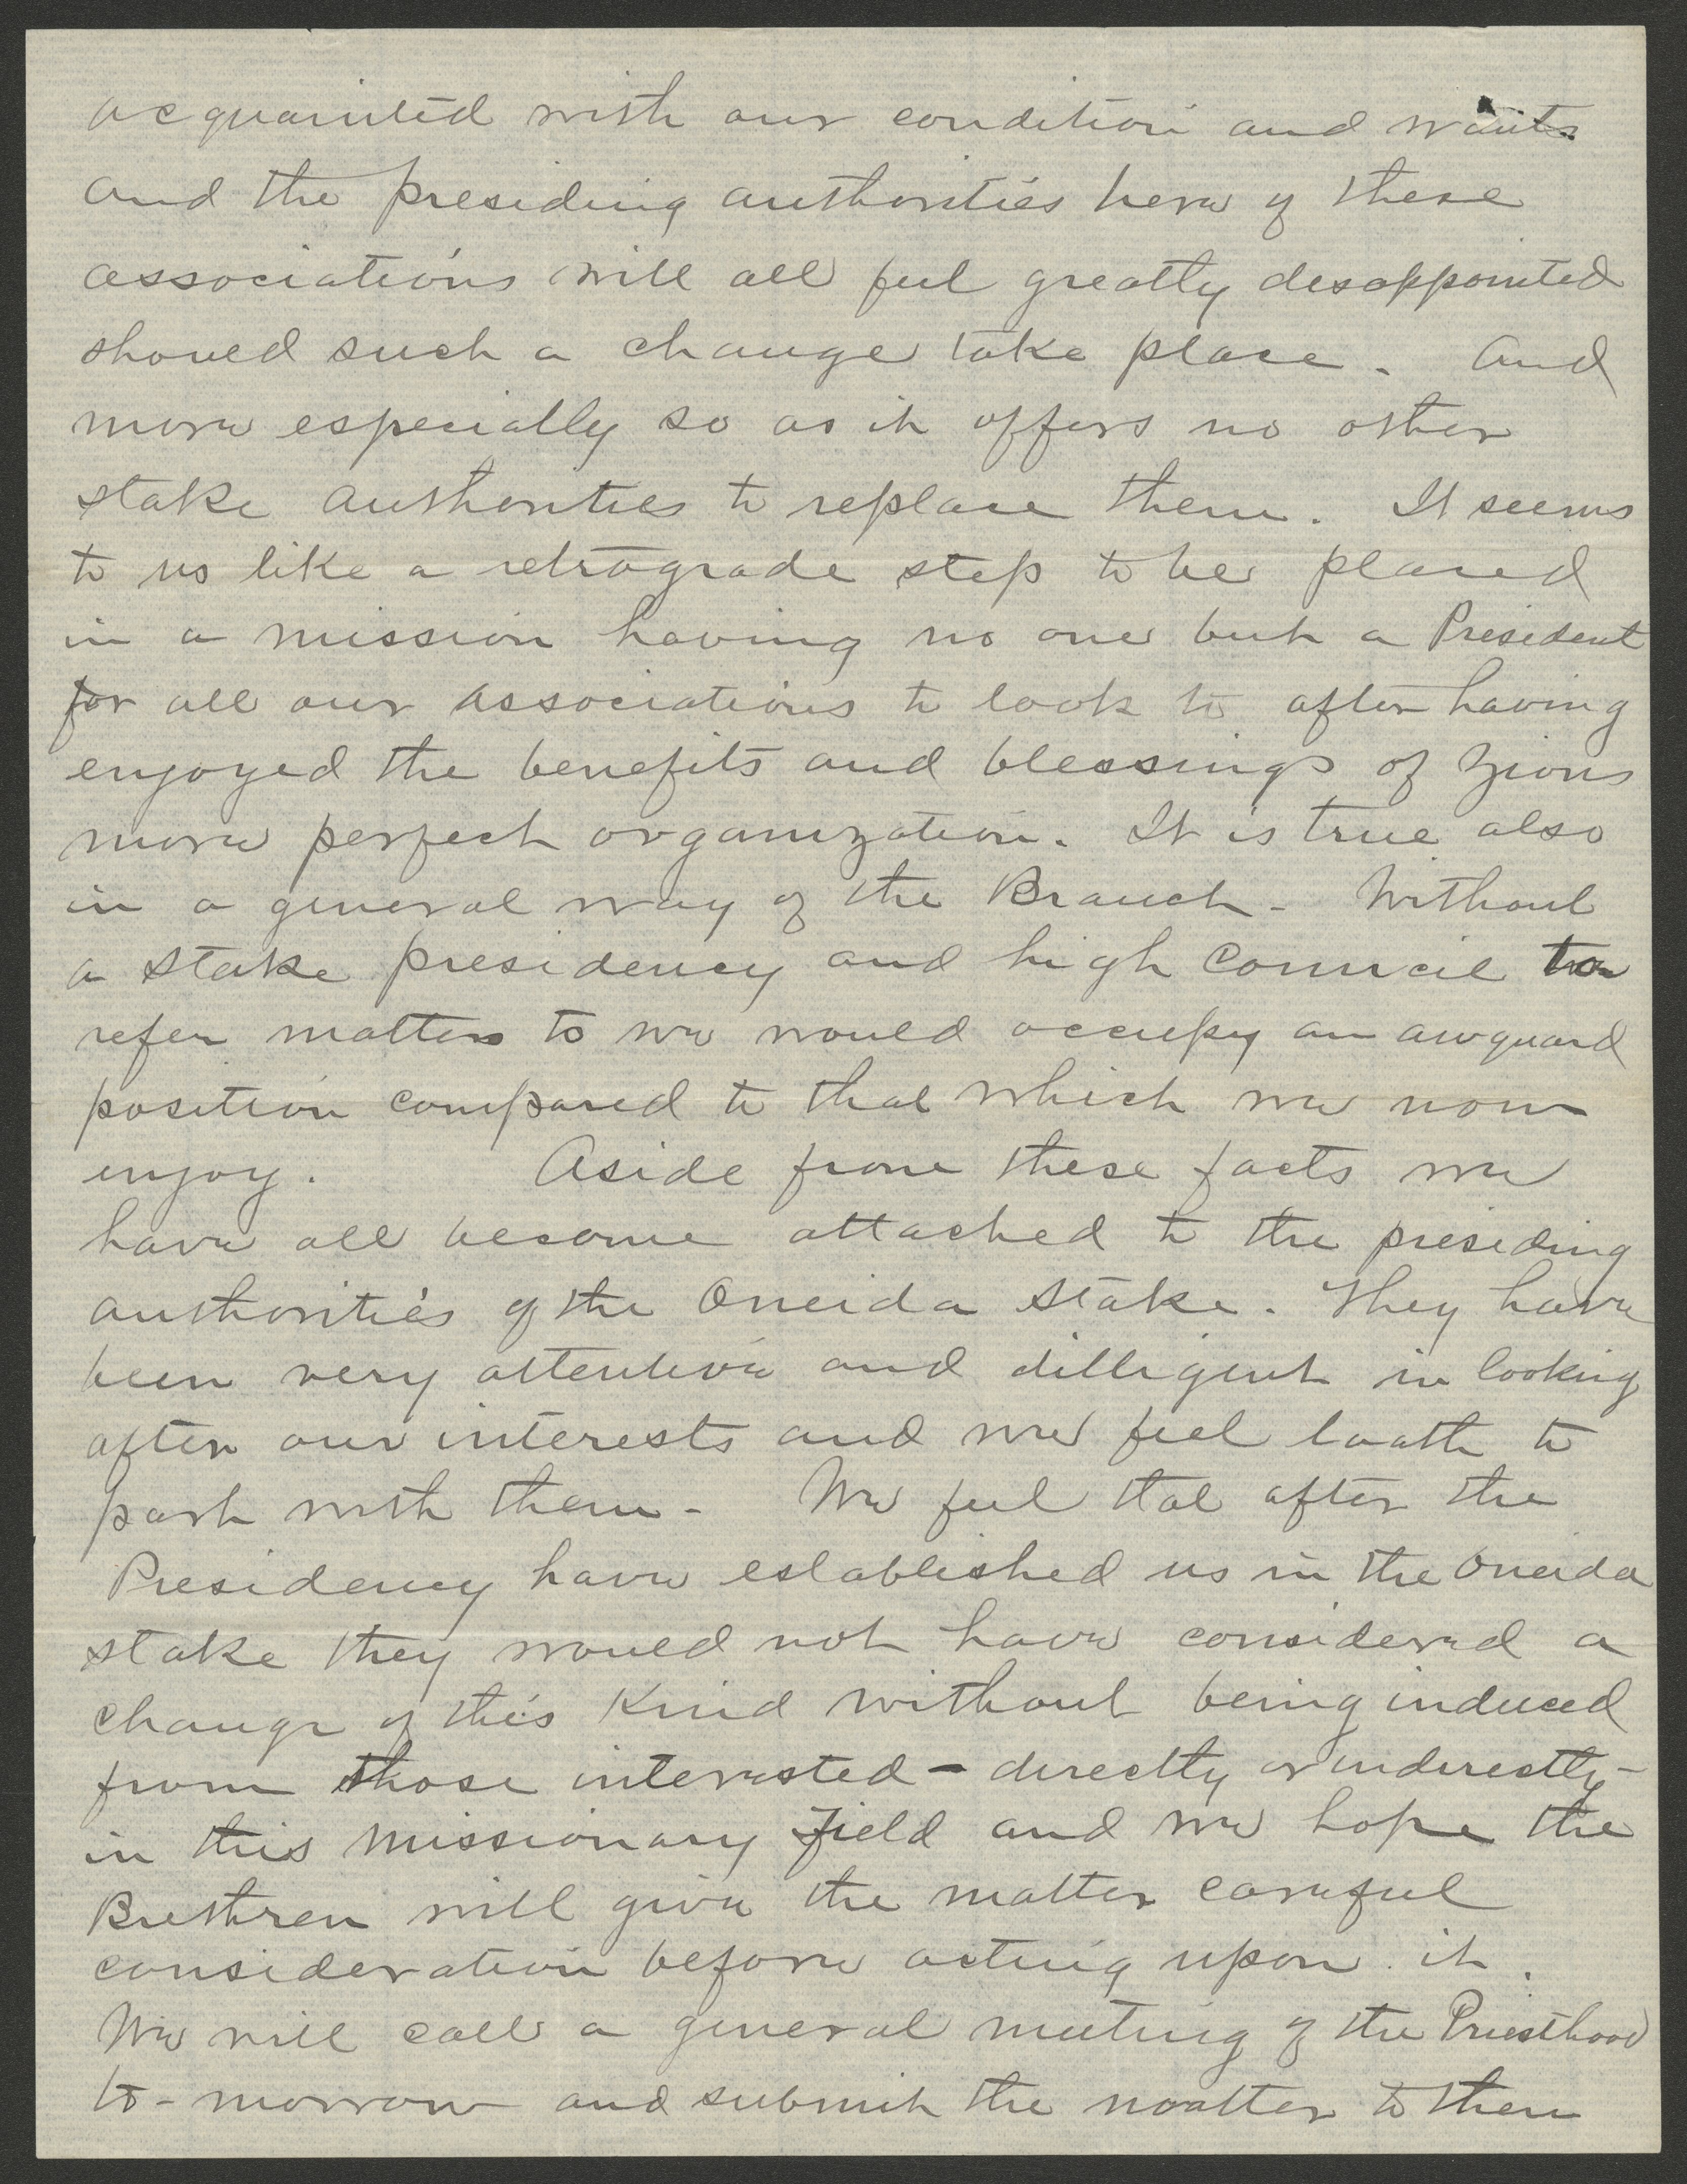 acquainted with our condition and wants
and the presiding authorities here of these
associations will all feel greatly desappointed
should such a change take place. And
more especially so as it offers no other
stake authorities to replace them. It seems
to us like a retrograde step to be placed
in a mission having no one but a President
for all our associations to look to after having
enjoyed the benefits and blessings of Zions
more perfect organization. It is true also
in a general way of the Branch - Without
a stake presidency and high council to
refer matters to we would occupy an awquard
position compared to that which we now
enjoy. Aside from these facts we
have all become attached to the presiding
authorities of the Oneida stake. They have
been very attentive and dilligent in looking
after our interests and we feel loath to
part with them - We feel that after the
Presidency have established us in the Oneida
stake they would not have considered a
change of this kind without being induced
from those interested - directly or inderectly -
in this missionary field and we hope the
Brethren will give the matter careful
consideration before acting upon it.
We will call a general meeting of the Priesthood
to-morrow and submit the matter to them